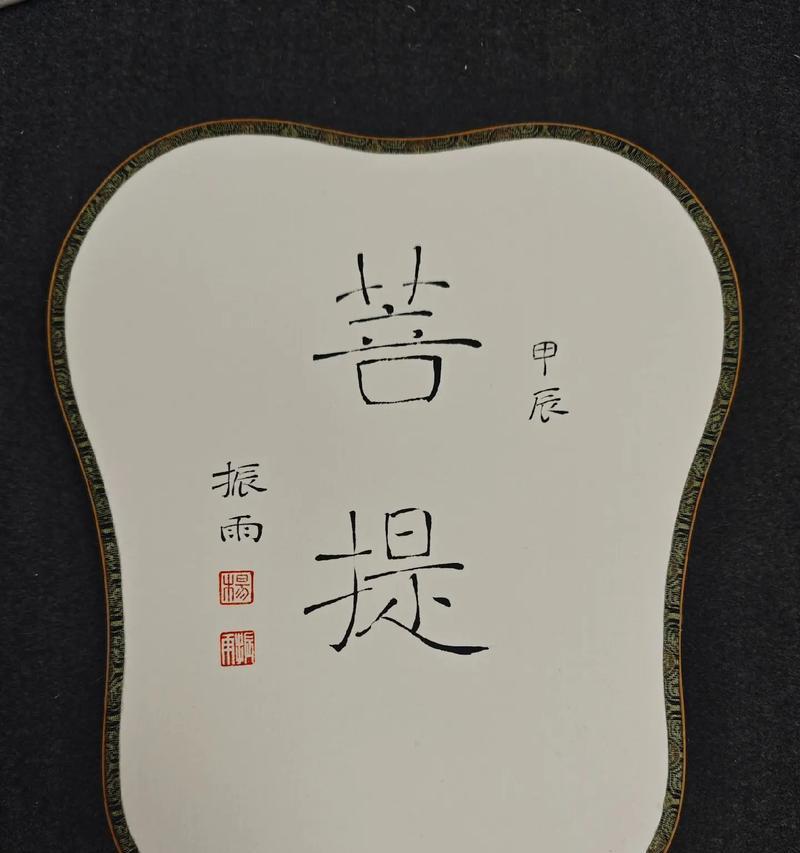 甲辰
菩提
振雨
楊
振雨